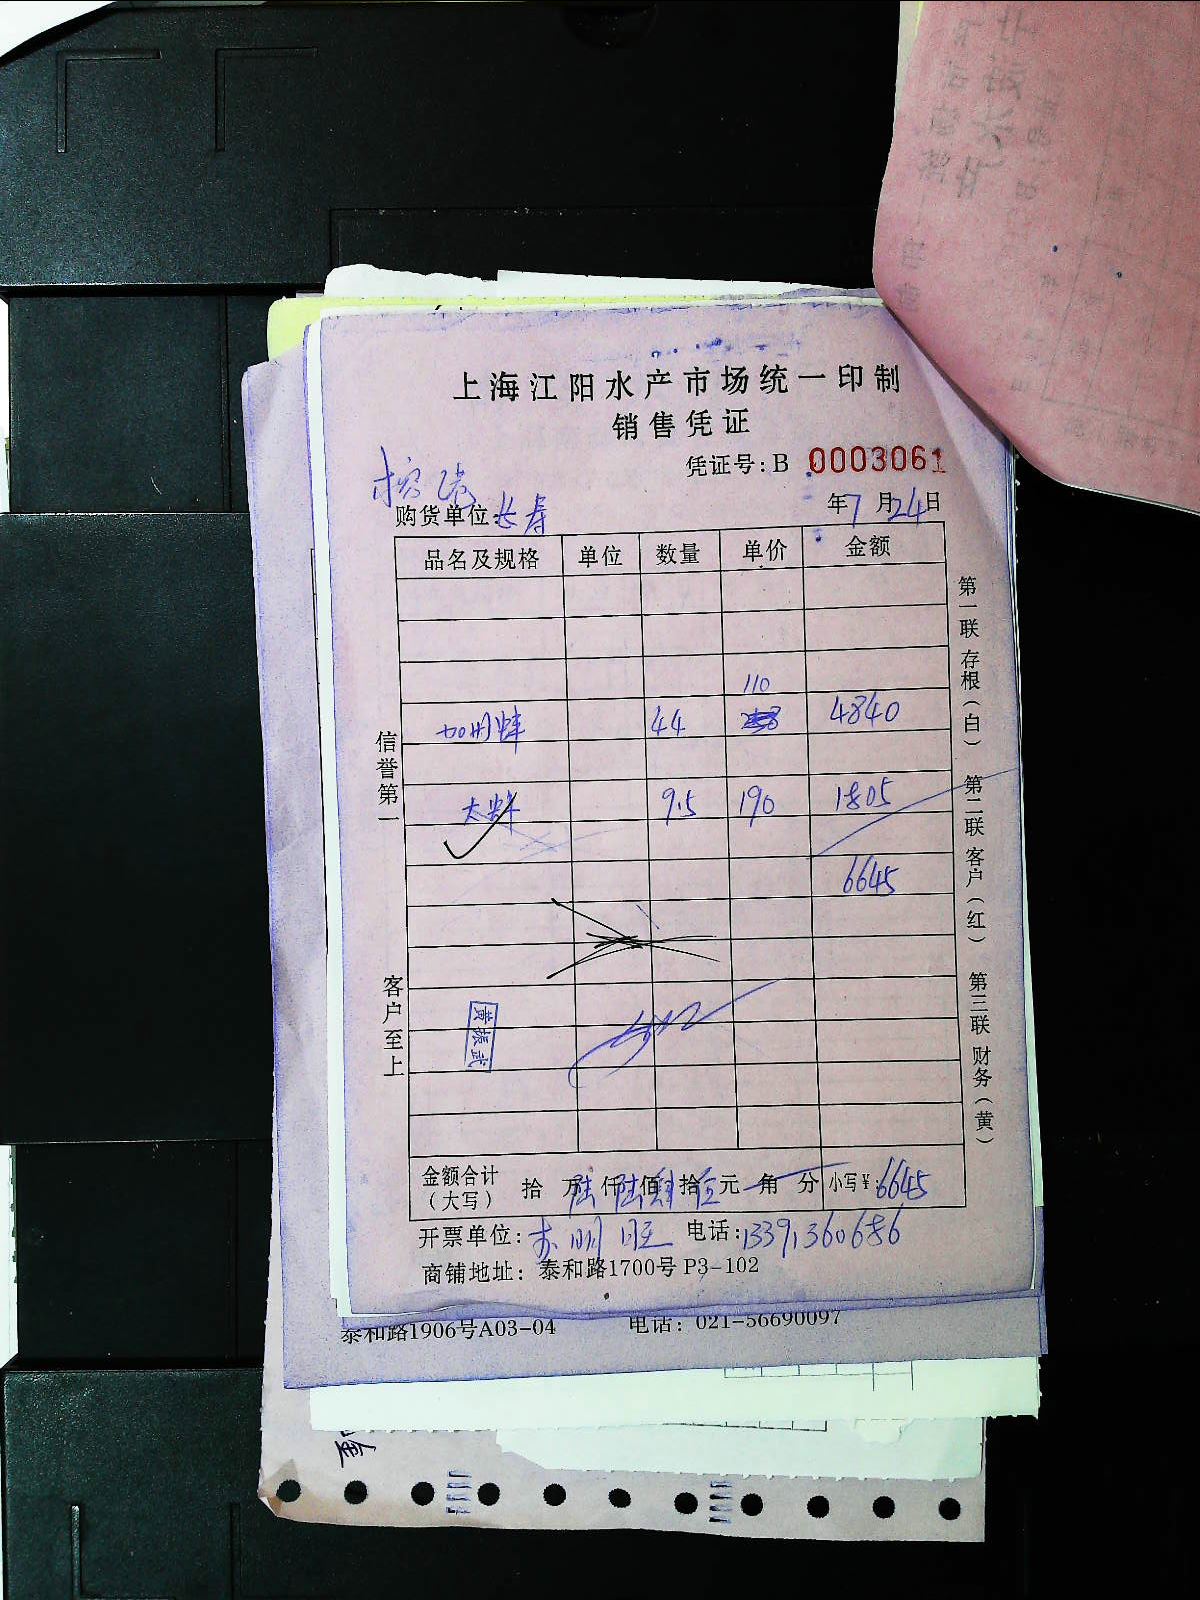 上海江阳水产市场统一印制
销售凭证
凭证号：B 0003061
购货单位：长寿
年7月24日
品名及规格 单位 数量 单价 金额
110
加州蚌 44 4840
太蚌 9.5 190 1805
6645
信誉第一
客户至上
黄振武
第一联 存根（白） 第二联 客户（红） 第三联 财务（黄）
金额合计（大写） 拾 万陆仟陆佰肆拾伍元 角 分 小写￥：6645
开票单位：苏明旺 电话：13391360686
商铺地址：泰和路1700号 P3-102
泰和路1906号A03-04 电话：021-56690097